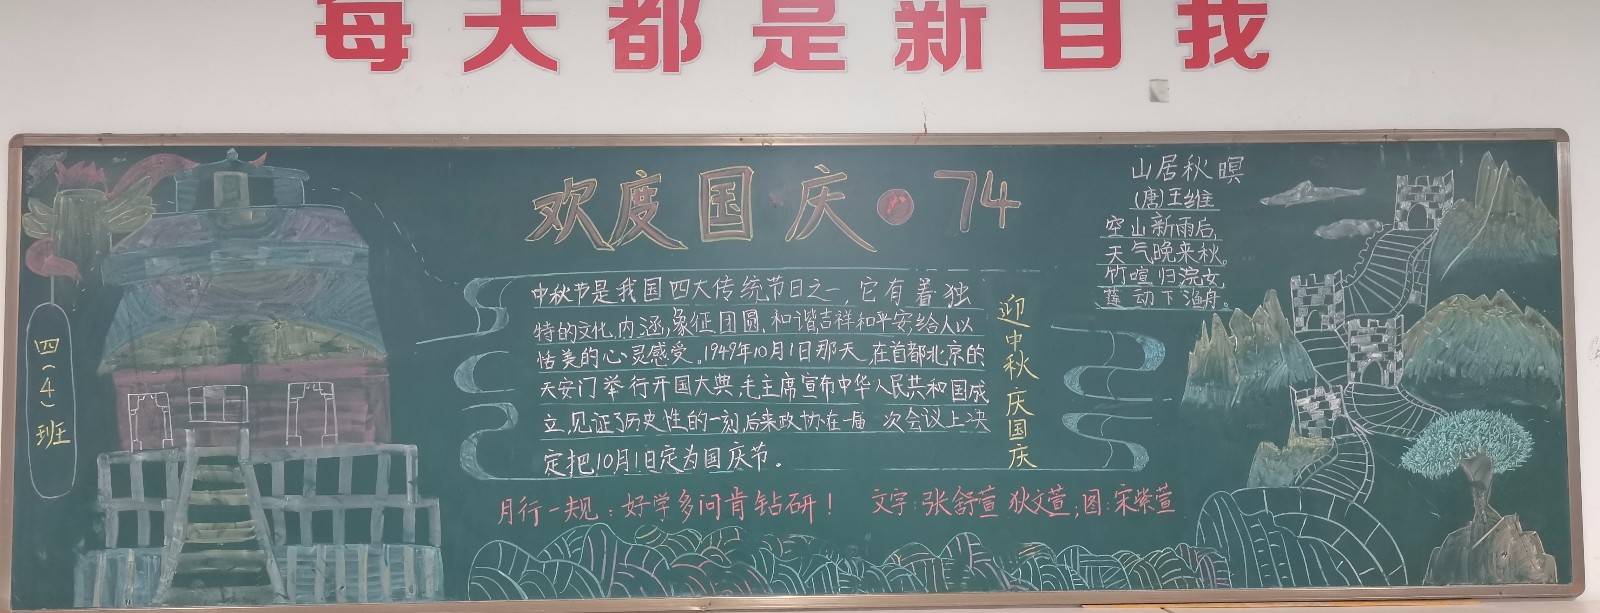 每天都是新自我
欢度国庆·74
四(4)班
中秋节是我国四大传统节日之一,它有着独
特的文化内涵,象征团圆、和谐吉祥和平安给人以
恬美的心灵感受。1949年10月1日那天,在首都北京的
天安门举行开国大典,毛主席宣布中华人民共和国成
立,见证了历史性的一刻,后来政协在一届一次会议上决
定把10月1日定为国庆节。
迎中秋庆国庆
山居秋暝
(唐)王维
空山新雨后,
天气晚来秋。
竹喧归浣女,
莲动下渔舟。
月行一规:好学多问肯钻研!
文字:张舒萱 狄文萱;图:宋紫萱